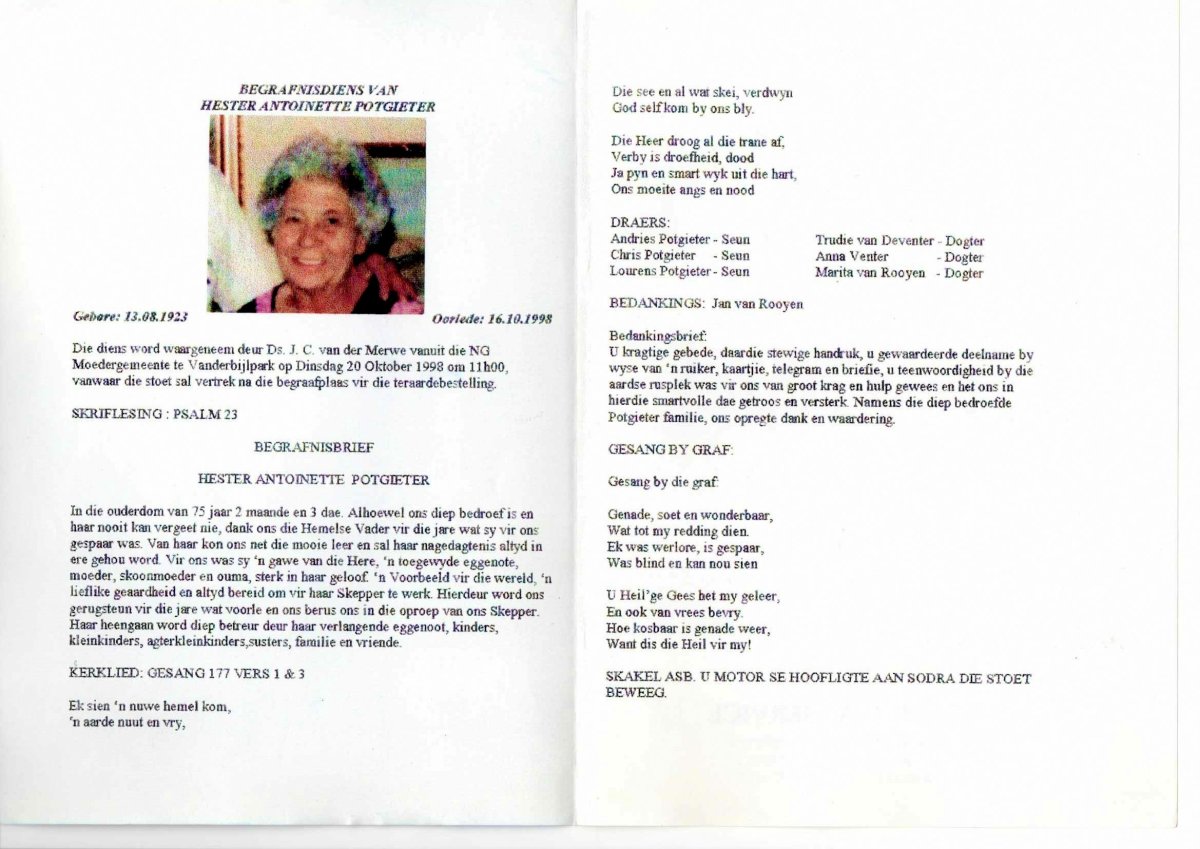 BEGRAFNISDIENS VAN
HESTER ANTOINETTE POTGIETER
Gebore: 13.08.1923
Oorlede: 16.10.1998
Die diens word waargeneem deur Ds. J. C. van der Merwe vanuit die NG
Moedergemeente te Vanderbijlpark op Dinsdag 20 Oktober 1998 om 11h00,
vanwaar die stoet sal vertrek na die begraafplaas vir die teraardebestelling.
SKRIFLESING : PSALM 23
BEGRAFNISBRIEF
HESTER ANTOINETTE POTGIETER
In die ouderdom van 75 jaar 2 maande en 3 dae. Alhoewel ons diep bedroef is en
haar nooit kan vergeet nie, dank ons die Hemelse Vader vir die jare wat sy vir ons
gespaar was. Van haar kon ons net die mooie leer en sal haar nagedagtenis altyd in
ere gehou word. Vir ons was sy 'n gawe van die Here, 'n toegewyde eggenote,
moeder, skoonmoeder en ouma, sterk in haar geloof. 'n Voorbeeld vir die wereld, 'n
lieflike geaardheid en altyd bereid om vir haar Skepper te werk. Hierdeur word ons
gerugsteun vir die jare wat voorle en ons berus ons in die oproep van ons Skepper.
Haar heengaan word diep betreur deur haar verlangende eggenoot, kinders,
kleinkinders, agterkleinkinders,susters, familie en vriende.
KERKLIED: GESANG 177 VERS 1 & 3
Ek sien 'n nuwe hemel kom,
'n aarde nuut en vry,
Die see en al wat skei, verdwyn
God self kom by ons bly.
Die Heer droog al die trane af,
Verby is droefheid, dood
Ja pyn en smart wyk uit die hart,
Ons moeite angs en nood
DRAERS:
Andries Potgieter - Seun Trudie van Deventer - Dogter
Chris Potgieter - Seun Anna Venter - Dogter
Lourens Potgieter - Seun Marita van Rooyen - Dogter
BEDANKINGS: Jan van Rooyen
Bedankingsbrief:
U kragtige gebede, daardie stewige handruk, u gewaardeerde deelname by
wyse van 'n ruiker, kaartjie, telegram en briefie, u teenwoordigheid by die
aardse rusplek was vir ons van groot krag en hulp gewees en het ons in
hierdie smartvolle dae getroos en versterk. Namens die diep bedroefde
Potgieter familie, ons opregte dank en waardering.
GESANG BY GRAF:
Gesang by die graf:
Genade, soet en wonderbaar,
Wat tot my redding dien.
Ek was werlore, is gespaar,
Was blind en kan nou sien
U Heil'ge Gees het my geleer,
En ook van vrees bevry.
Hoe kosbaar is genade weer,
Want dis die Heil vir my!
SKAKEL ASB. U MOTOR SE HOOFLIGTE AAN SODRA DIE STOET
BEWEEG.